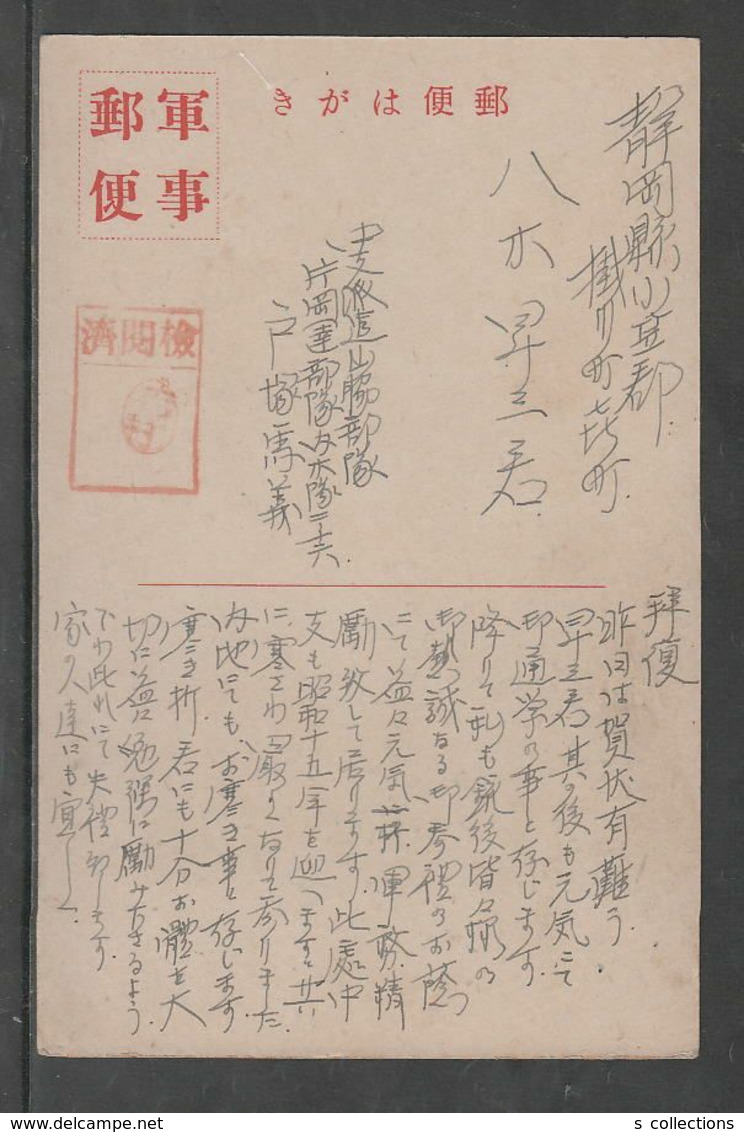 郵便はがき
軍事
郵便
檢閲濟
靜岡縣小笠郡
掛川町喜町
八木昇三君
中支派遣山脇部隊
片岡達部隊内木隊二十六
戸塚馬義
拜復
昨日は賀状有難う
昇三君其の後も元気にて
御通学の事と存じます
降りて私も銃後皆々様の
御熱誠なる御奉禮のお蔭
にて益々元気 軍務精
勵致して居ります。此處中
支も昭和十五年を迎へますと共
に寒さわ
なりて参りました
内地にてもお寒き事と存じます
寒き折君にも十分お體を大
切に益々勉強に勵みなさるよう
でわ此れにて失禮却します。
家の人達にも宜しく
s collections